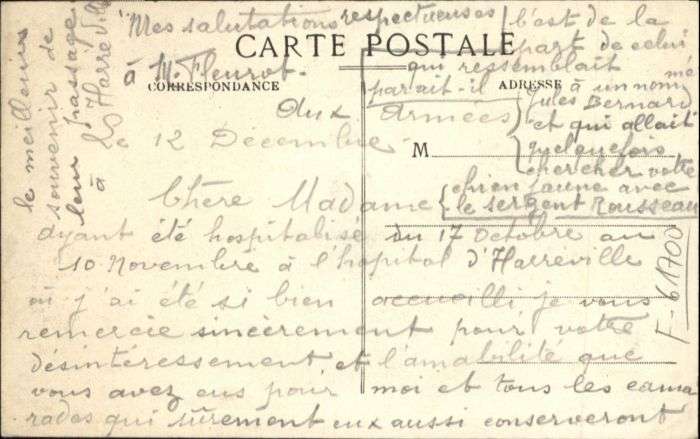 "Mes salutations respectueuses
à M. Fleurot.
CARTE POSTALE
CORRESPONDANCE
ADRESSE
M
c'est de la
part de celui
qui ressemblait
parait-il à un nommé
Jules Bernard
et qui allait
quelquefois
chercher votre
chien jaune avec
le sergent Rousseau
Aux Armées
Le 12 Décembre
Chère Madame
ayant été hospitalisé du 17 Octobre au
10 Novembre à l'hopital d'Harreville
où j'ai été si bien accueilli je vous
remercie sincèrement pour votre
désintéressement et l'amabilité que
vous avez eus pour moi et tous les cama
rades qui sûrement eux aussi conserveront
le meilleur
souvenir de
leur passage
à Harreville
F-61700